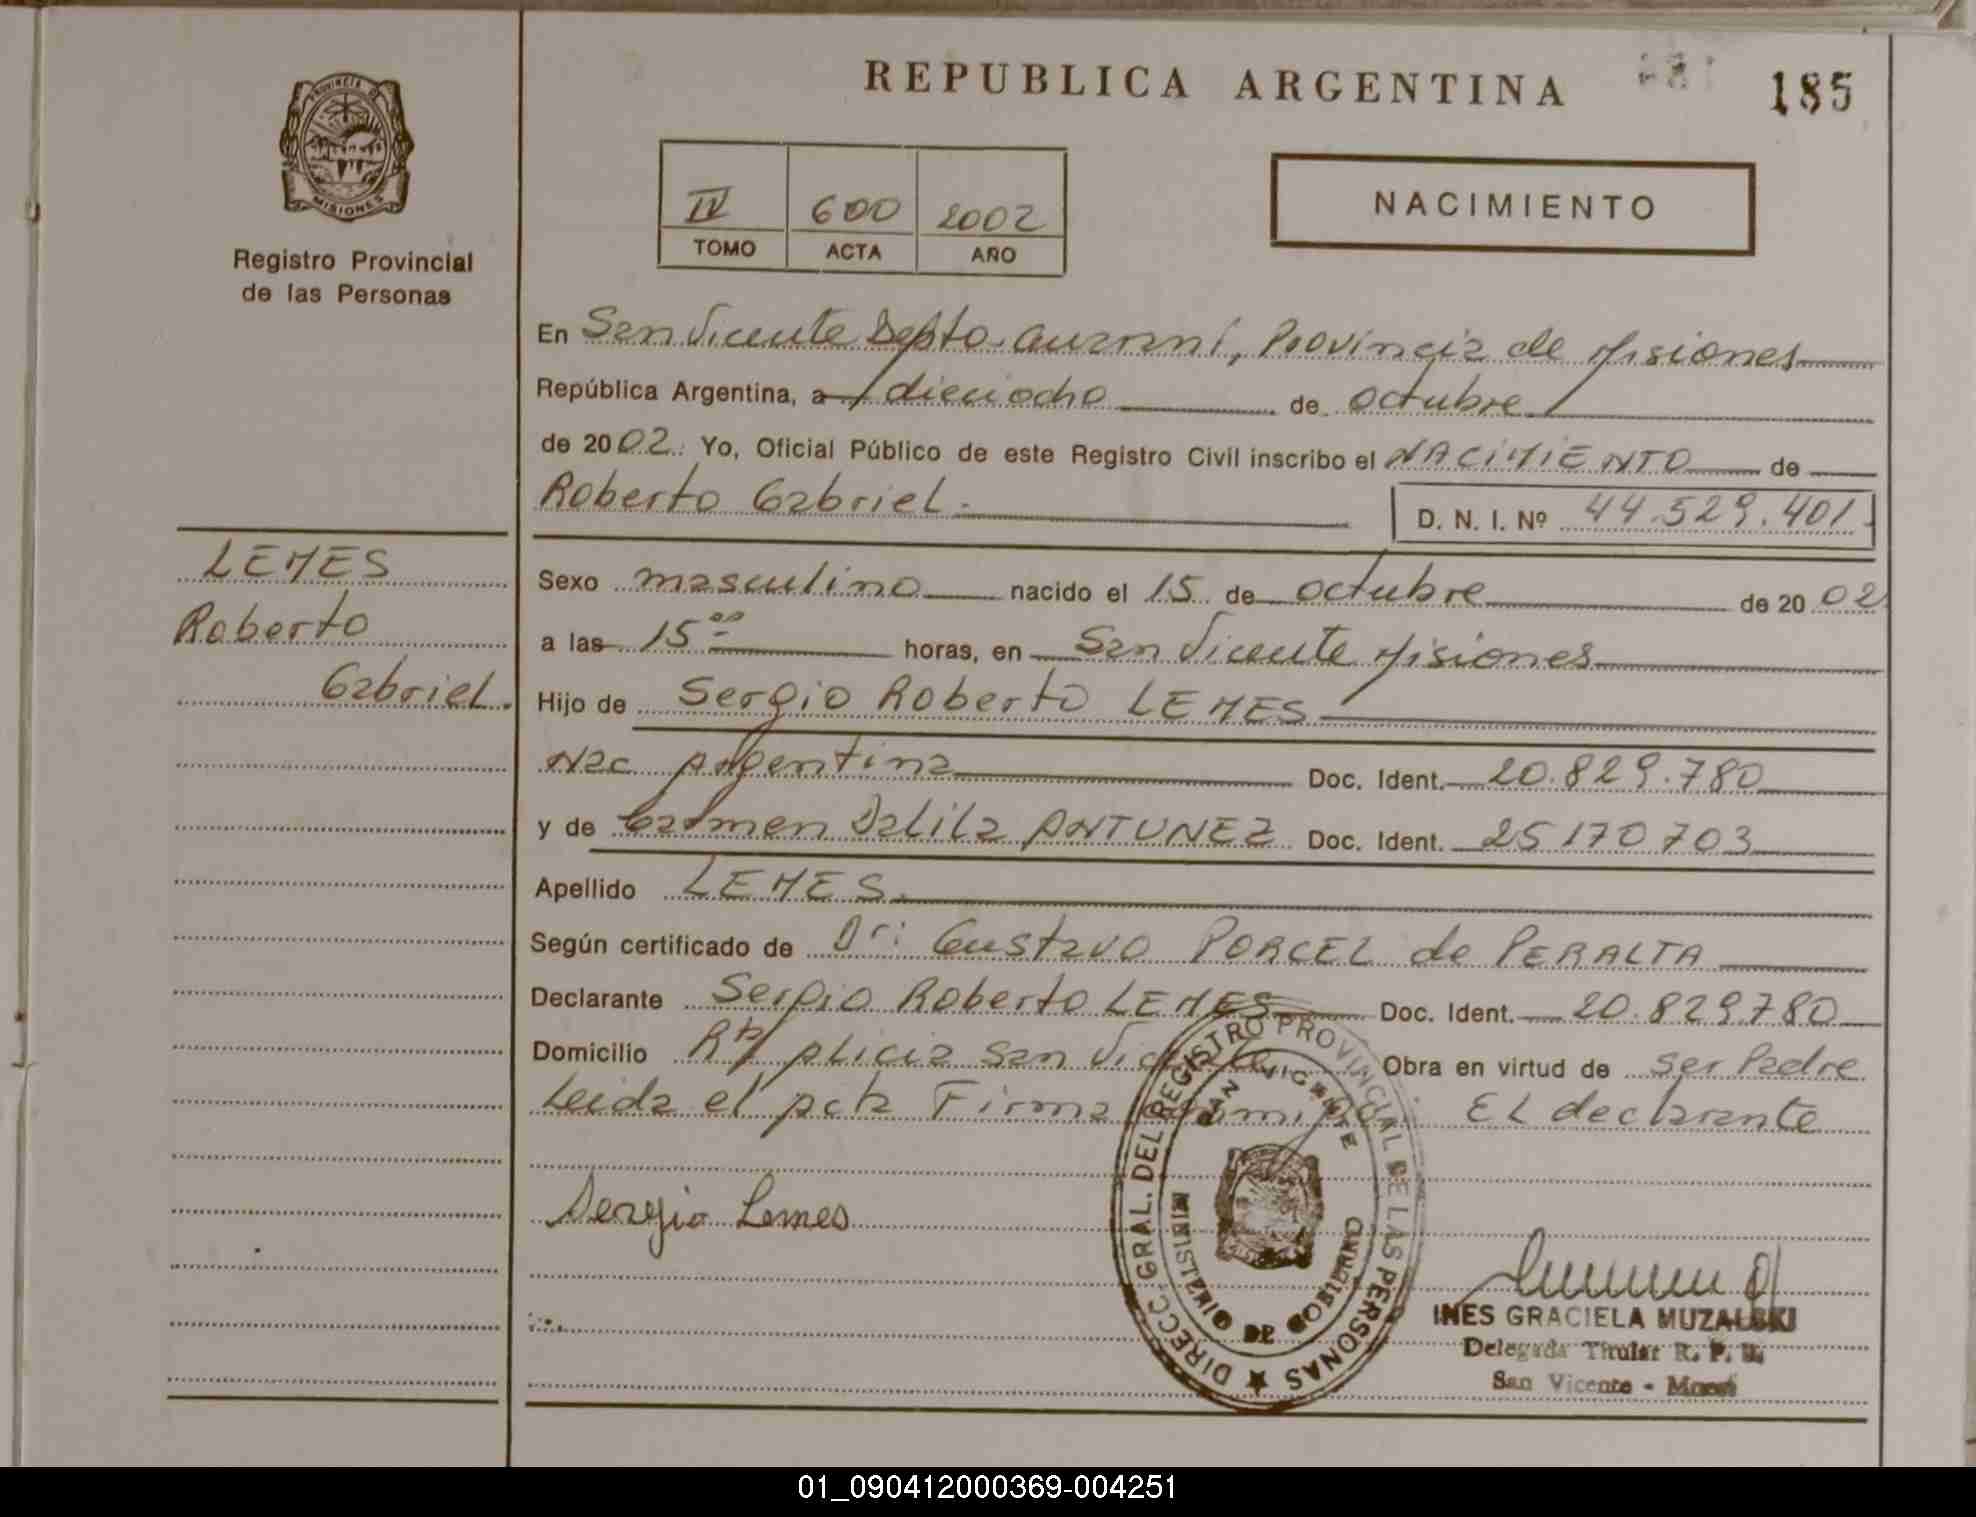 REPUBLICA ARGENTINA
185
PROVINCIA DE
MISIONES
Registro Provincial
de las Personas
IV 600 2002
TOMO ACTA AÑO
NACIMIENTO
En San Vicente Depto. Guaraní, Provincia de Misiones
República Argentina, a dieciocho de octubre
de 2002. Yo, Oficial Público de este Registro Civil inscribo el NACIMIENTO de
Roberto Gabriel.
D. N. I. Nº 44.529.401.
LEMES
Roberto
Gabriel.
Sexo masculino nacido el 15 de octubre de 2002
a las 15 00 horas, en San Vicente Misiones
Hijo de Sergio Roberto LEMES
Nac Argentina Doc. Ident. 20.829.780
y de Carmen Dalila ANTUNEZ Doc. Ident. 25170703
Apellido LEMES.
Según certificado de Dr: Gustavo PORCEL de PERALTA
Declarante Sergio Roberto LEMES Doc. Ident. 20.829780
Domicilio San Vicente Obra en virtud de ser Padre
Leida el acta Firma conmigo: EL declarante
Sergio Lemes
DIRECC. GRAL. DEL REGISTRO PROVINCIAL DE LAS PERSONAS
SAN VICENTE
MINISTERIO DE GOBIERNO
INES GRACIELA MUZALSKI
Delegada Titular R. P. P.
San Vicente - Mnes
01_090412000369-004251